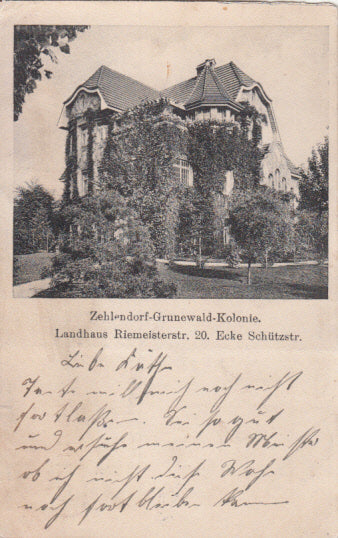 Zehlendorf-Grunewald-Kolonie.
Landhaus Riemeisterstr. 20. Ecke Schützstr.
Liebe Käthe
Tante will mich noch nicht
fortlaßen. Sei so gut
und ersuche meinen Meister
ob ich nicht diese Woche
noch fort bleiben kann